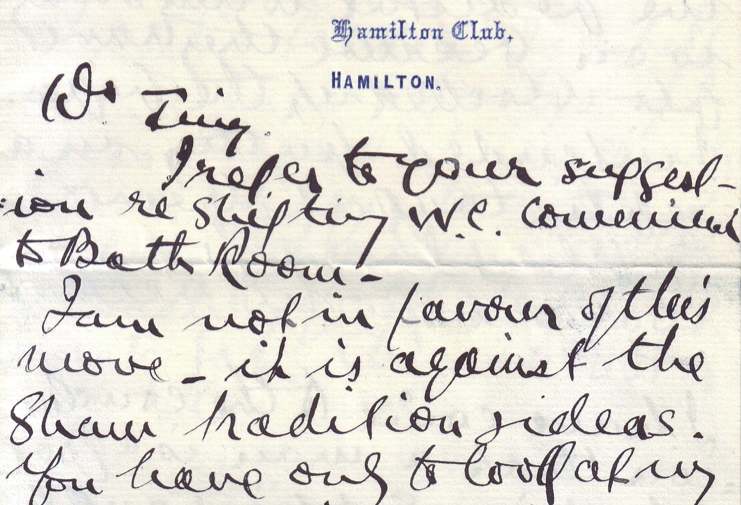 Hamilton Club,
HAMILTON.
Dr Tiny.
I refer to your suggest-
ion re shifting W.C. convenient
to Bath Room -
I am not in favour of this
move - it is against the
Sham tradition & ideas.
You have only to look at my